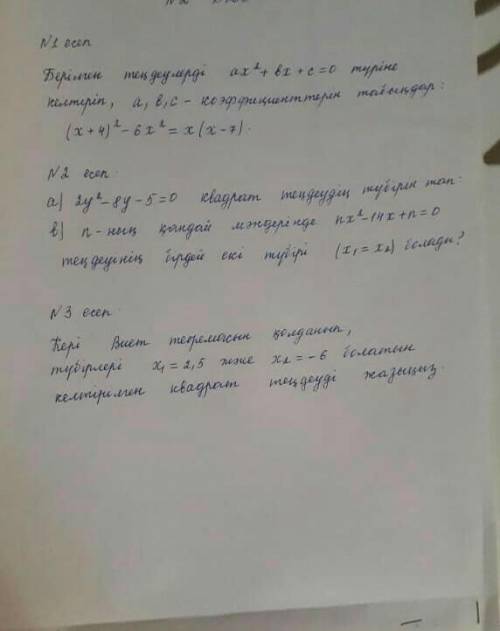 N1 есеп
Берілген теңдеулерді ax² + bx + c = 0 түріне
келтіріп, a, b, c - коэффициенттерін табыңдар:
(x+4)² - 6x² = x(x-7).
N2 есеп:
a) 2y² - 8y - 5 = 0 квадрат теңдеудің түбірін тап:
b) n - ның қандай мәндерінде nx² - 14x + n = 0
теңдеуінің бірдей екі түбірі (x₁ = x₂) болады?
N3 есеп
Кері Виет теоремасын қолданып,
түбірлері x₁ = 2,5 және x₂ = -6 болатын
келтірілген квадрат теңдеуді жазыңыз.